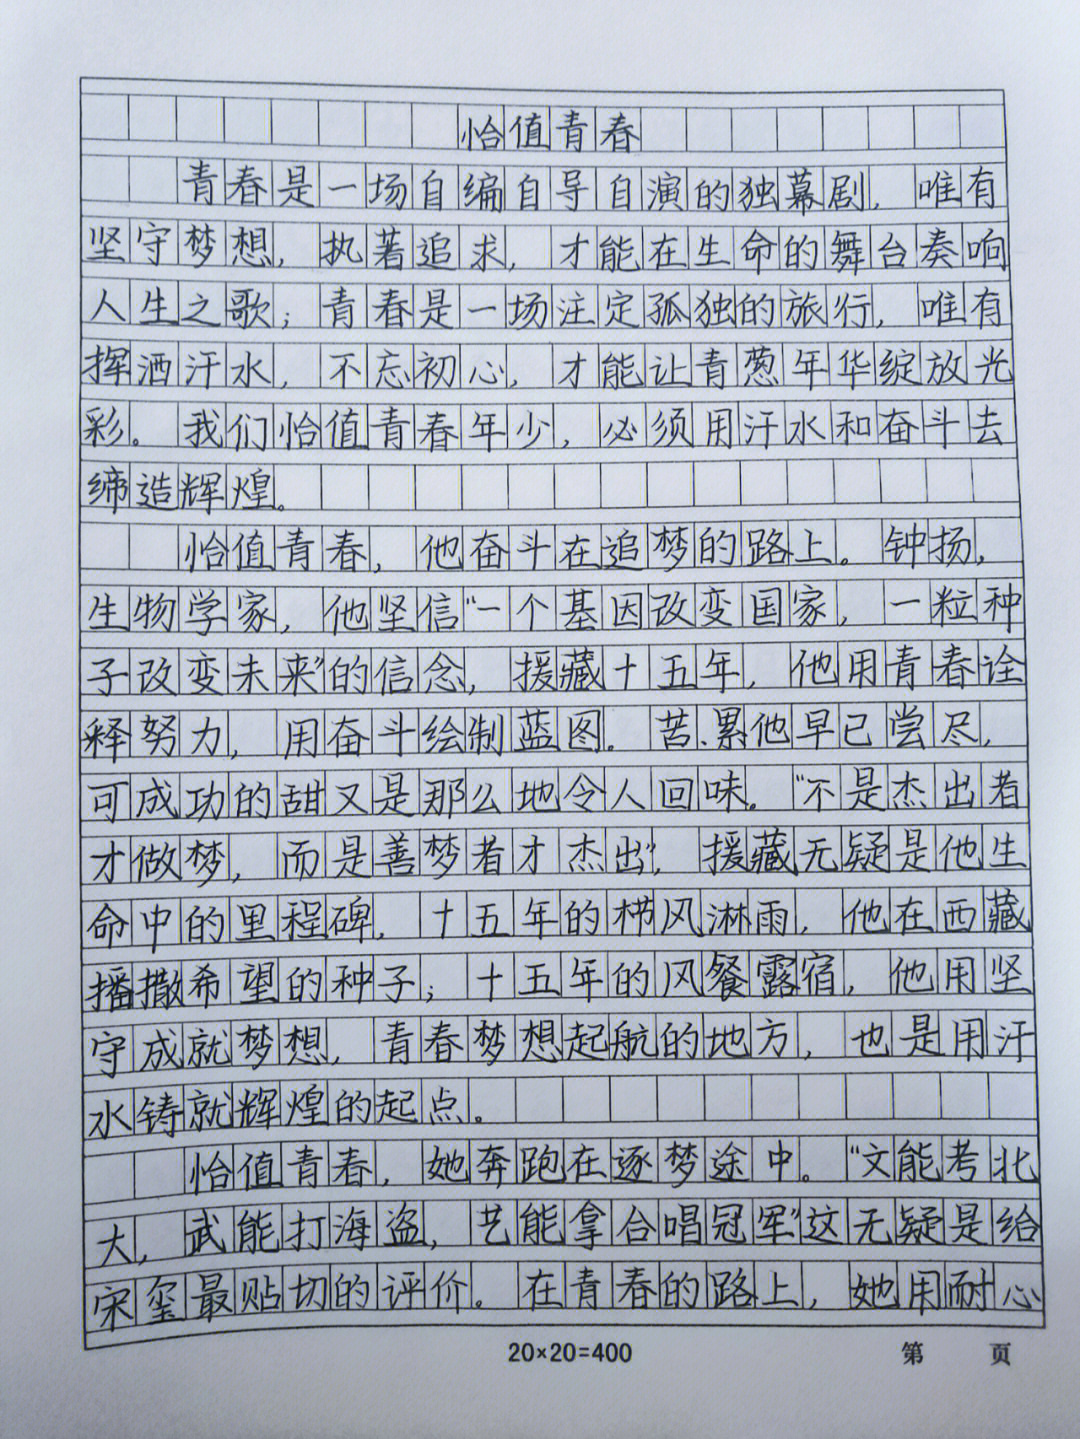 恰值青春
青春是一场自编自导自演的独幕剧，唯有
坚守梦想，执著追求，才能在生命的舞台奏响
人生之歌；青春是一场注定孤独的旅行，唯有
挥洒汗水，不忘初心，才能让青葱年华绽放光
彩。我们恰值青春年少，必须用汗水和奋斗去
缔造辉煌。
恰值青春，他奋斗在追梦的路上。钟扬，
生物学家，他坚信“一个基因改变国家，一粒种
子改变未来”的信念，援藏十五年，他用青春诠
释努力，用奋斗绘制蓝图。苦、累他早已尝尽，
可成功的甜又是那么地令人回味。“不是杰出者
才做梦，而是善梦者才杰出”，援藏无疑是他生
命中的里程碑，十五年的栉风淋雨，他在西藏
播撒希望的种子；十五年的风餐露宿，他用坚
守成就梦想，青春梦想起航的地方，也是用汗
水铸就辉煌的起点。
恰值青春，她奔跑在逐梦途中。“文能考北
大，武能打海盗，艺能拿合唱冠军”这无疑是给
宋玺最贴切的评价。在青春的路上，她用耐心
20×20=400 第 页